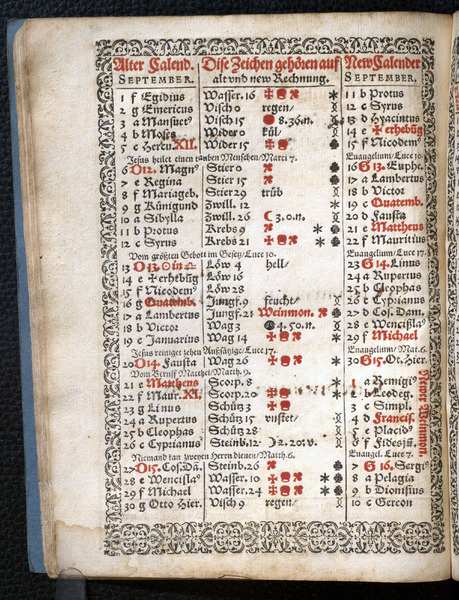 Alter Calend. Dise Zeichen gehören auf New Calender
SEPTEMBER. alt vnd new Rechnung. SEPTEMBER.
1 f Ægidius Wasser. 16 11 b Protus
2 g Emericus Visch 0 regen/ 12 c Syrus
3 a Mansuet9 Visch 15 8. 36. n. 13 d Hyacintus
4 b Moses Wider 0 kül/ 14 e erhebũg
5 c Heren XII. Wider 15 15 f Nicodem9
Jesus heilet einen tauben Menschen/ Marci 7. Euangelium/ Luce 10.
6 O12. Magn9 Stier 0 16 G13. Euphe.
7 e Regina Stier 15 17 a Lambertus
8 f Mariageb. Stier 29 trüb 18 b Victor
9 g Künigund Zwill. 12 19 c Quatemb.
10 a Sibylla Zwill. 26 3. 0. n. 20 d Fausta
11 b Protus Krebs 9 21 e Mattheus
12 c Syrus Krebs 21 22 f Mauritius
Vom größten Gebott im Gesetz/ Luc. 10. Euangelium/ Luce 17.
13 O13. in Löw 4 hell/ 23 G14. Linus
14 e erhebũg Löw 16 24 a Rupertus
15 f Nicodem9 Löw 28 25 b Cleophas
16 g Quatemb. Jungf. 9 feucht/ 26 c Cyprianus
17 a Lambertus Jungf. 21 Weinmon. 27 d Cos. Dam.
18 b Victor Wag 3 4. 50. n. 28 e Wencislaus
19 c Januarius Wag 14 29 f Michael
Jesus reiniget zehen Aussätzige/ Luce 17. Euangelium/ Mat. 6.
20 O14. Fausta Wag 26 30 G15. Ot. Hier.
Vom Beruff Matthei/ Matth. 9.
21 e Mattheus Scorp. 8 1 a Remigi9
22 f Maur. XI. Scorp. 20 2 b Leodeg.
23 g Linus Schütz 3 3 c Simpl.
24 a Rupertus Schütz 15 vnstet/ 4 d Francis.
25 b Cleophas Schütz 28 5 e Placid9
26 c Cyprianus Steinb. 12 2. 20. v. 6 f Fides
Newer Weinmon.
Niemand kan zweyen Herren dienen/ Matth. 6. Euangel. Luce 7.
27 O15. Cos. Dã. Steinb. 26 7 G16. Sergi9
28 e Wencisla9 Wasser. 10 8 a Pelagia
29 f Michael Wasser. 24 9 b Dionysius
30 g Otto Hier. Visch 9 regen/ 10 c Gereon